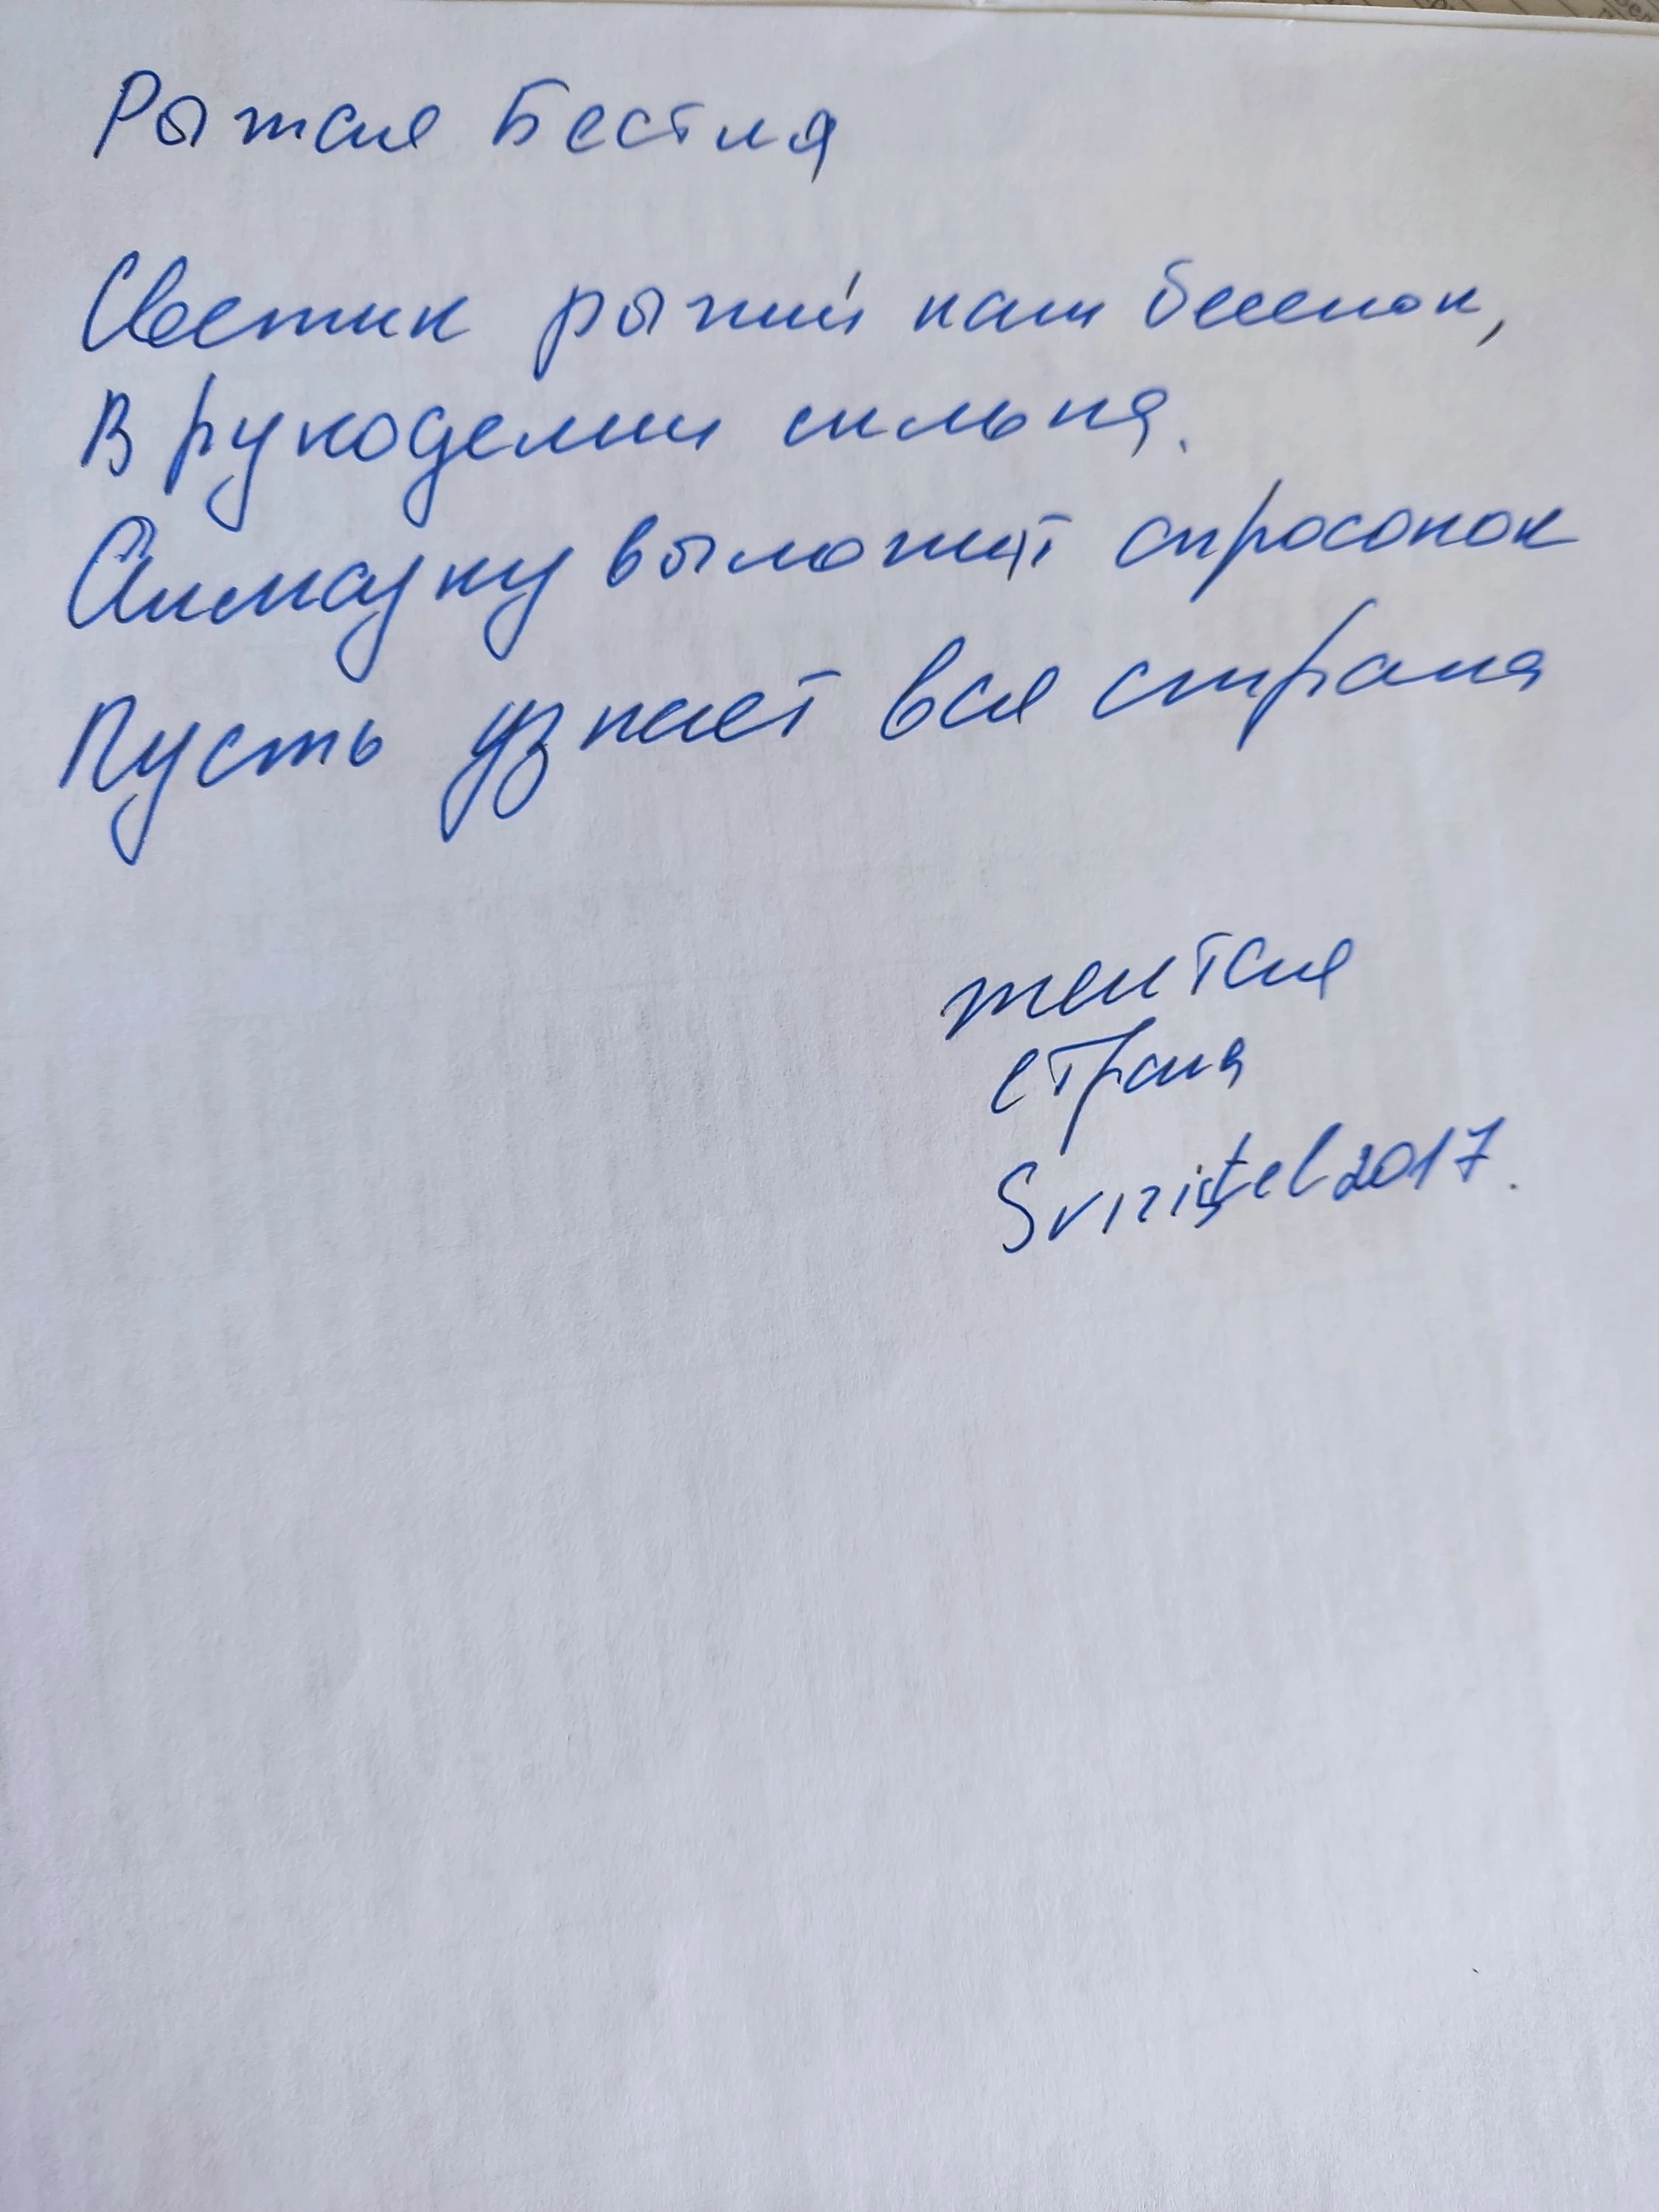 Рыжая Бестия
Светик рыжий наш бесенок,
В рукоделии сильна.
выложит спросонок
Пусть узнает вся страна
желтая
страна
Sviristel2017.